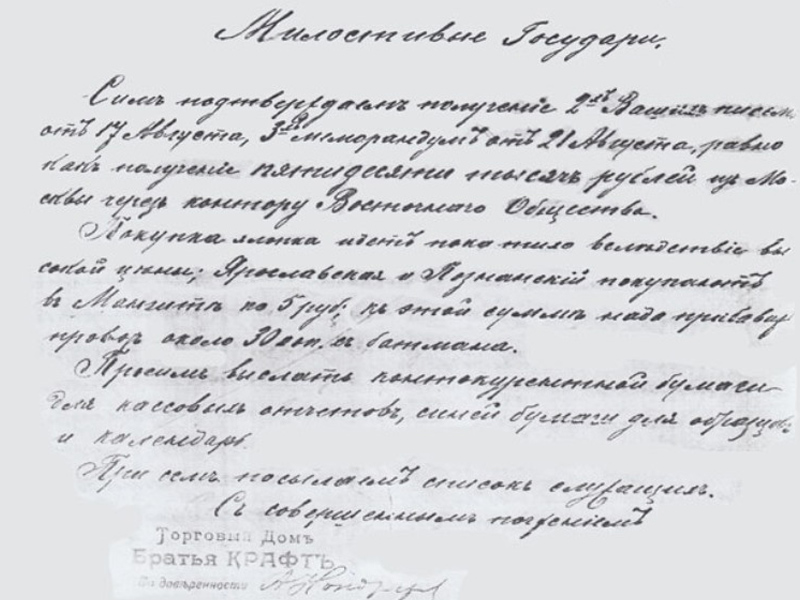 Милостивые Государи,
Симъ подтверждаемъ полученіе 2хъ Вашихъ писем.
отъ 17 Августа, 3хъ меморандумъ отъ 21 Августа, равно
какъ полученіе пятидесяти тысячъ рублей изъ Мо-
сквы черезъ контору Восточнаго Общества.
Покупка хлопка идетъ пока тихо вслѣдствіе вы
сокой цѣны; Ярославская и Познанскій покупаютъ
въ Мангитѣ по 5 руб, къ этой суммѣ надо прибавит
провозъ около 30 коп. съ батмана.
Просимъ выслать контокурентной бумаги
для кассовыхъ отчетовъ, синей бумаги для образцовъ
и календарь.
При семъ посылаемъ списокъ служащихъ.
Съ совершеннымъ почтеніемъ
Торговый Домъ
Братья КРАФТЪ
По довѣренности